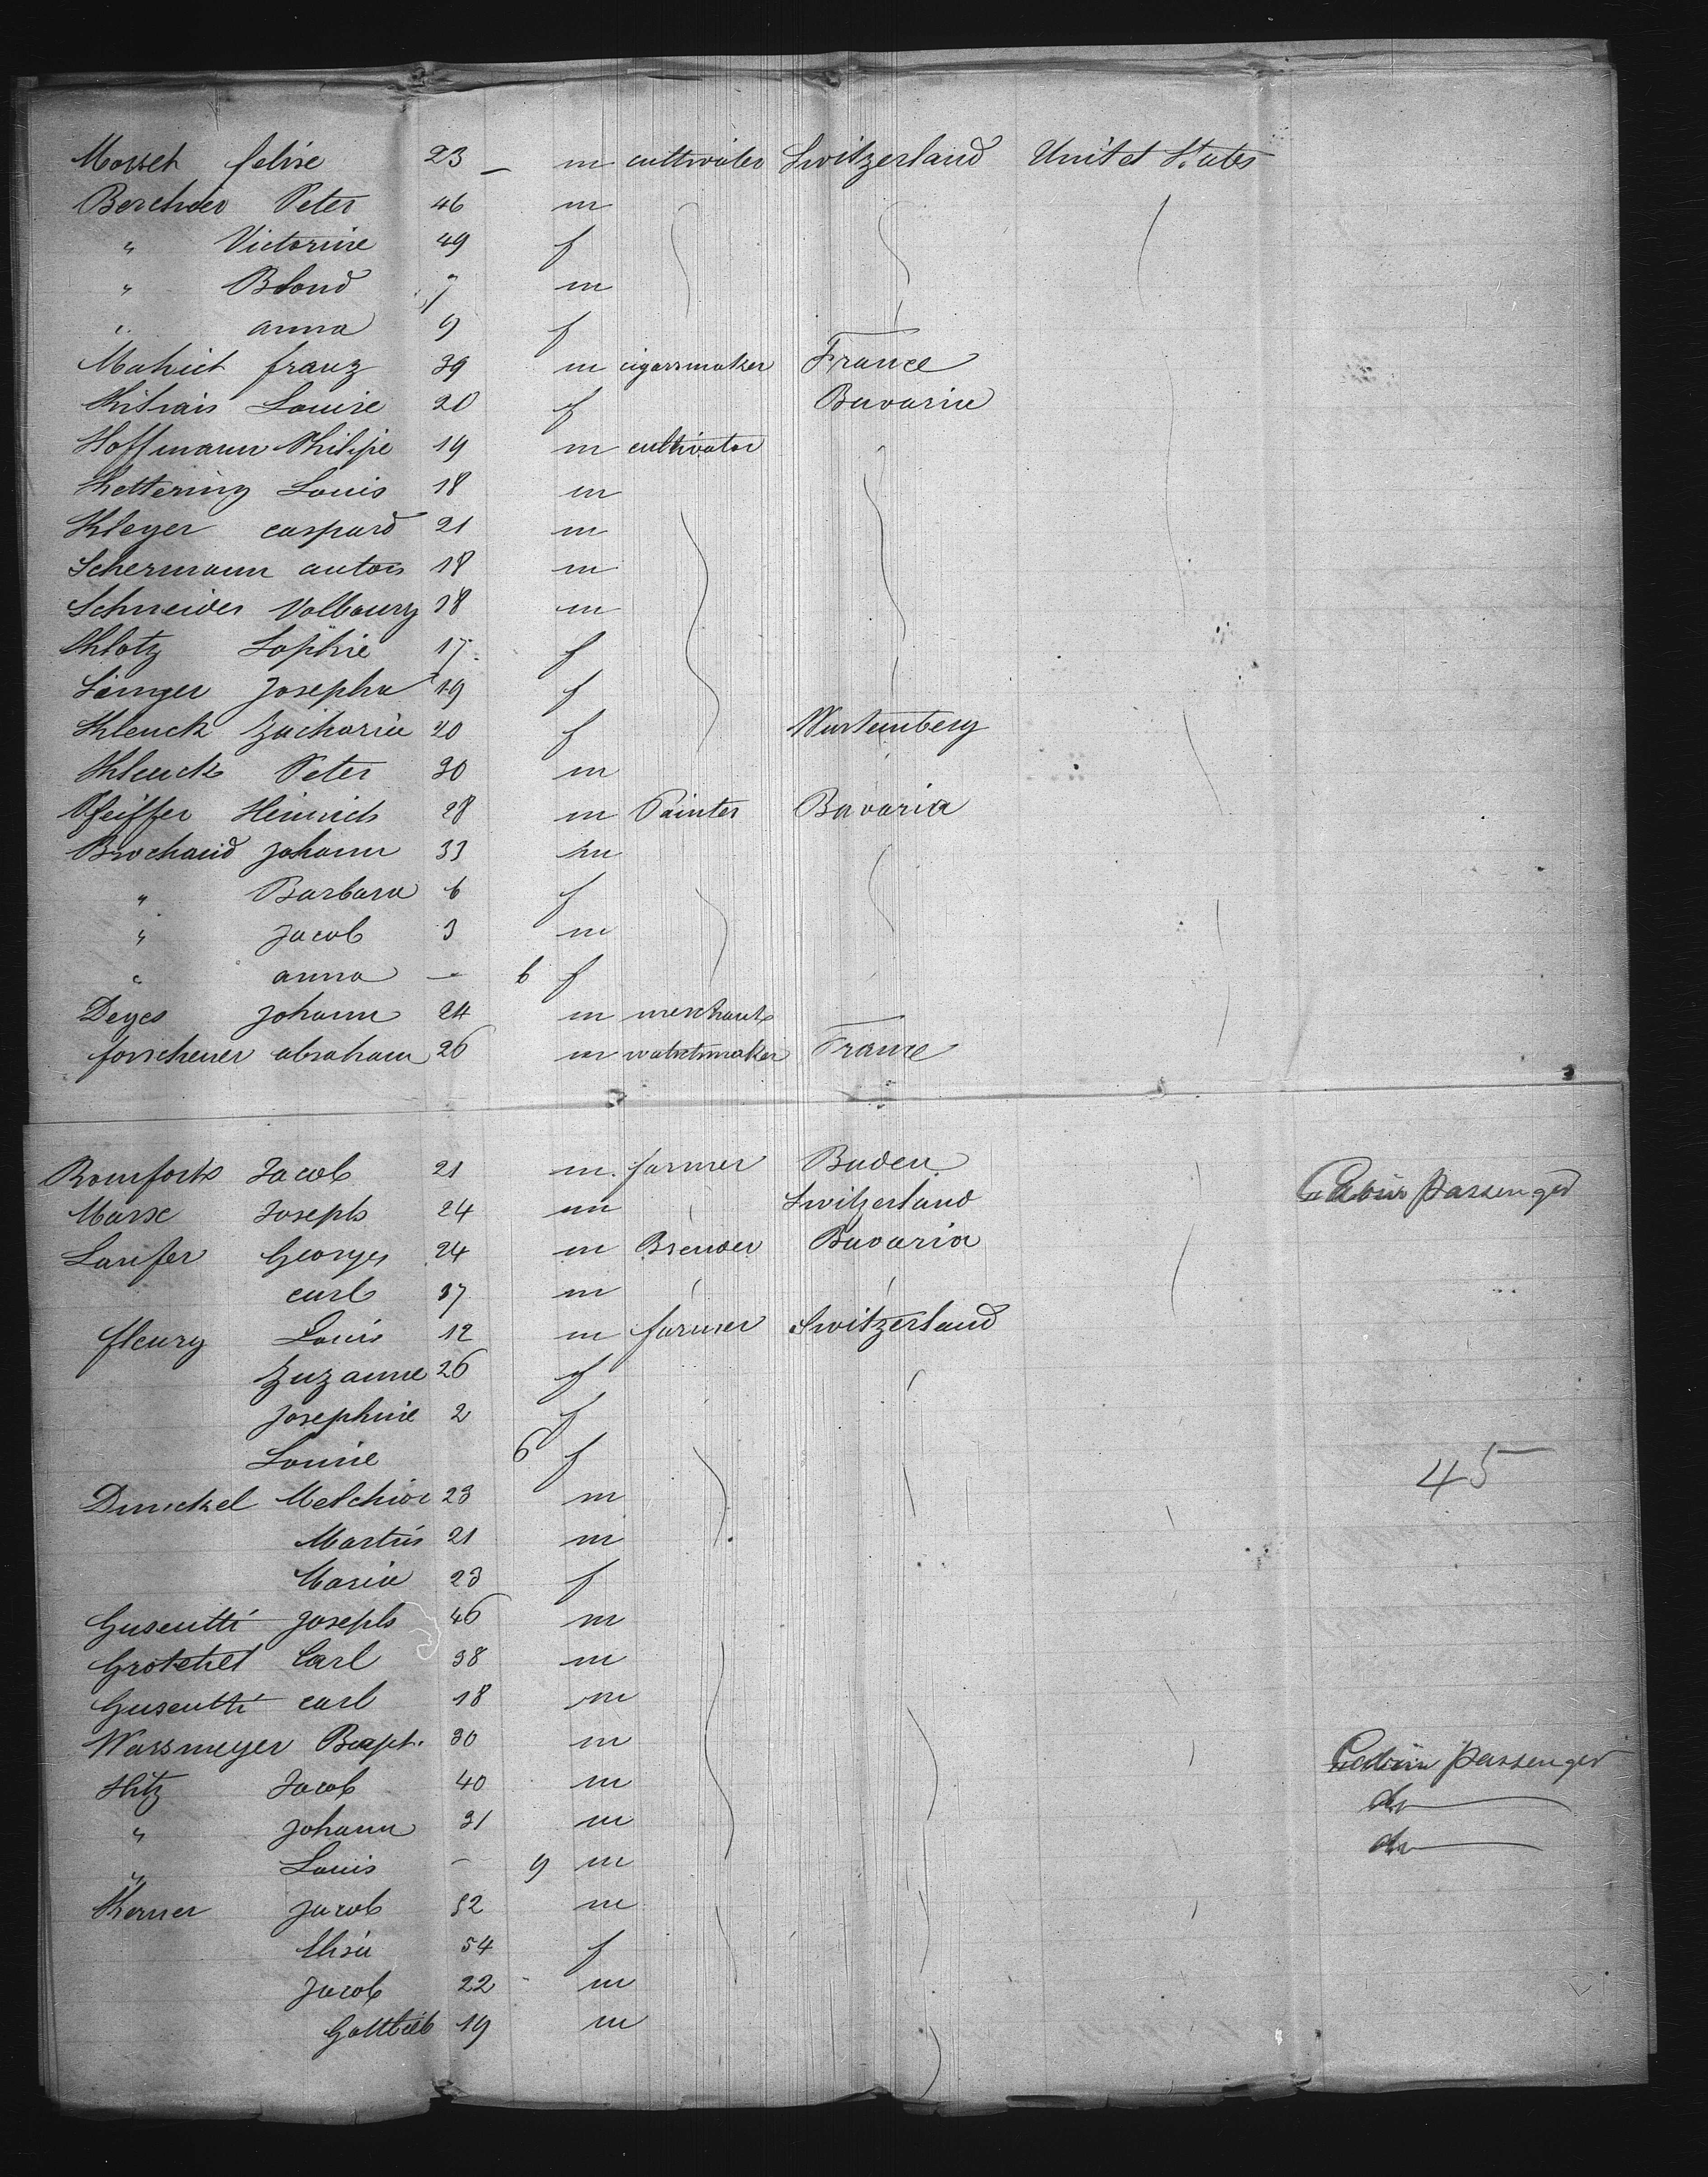 Mosset felise 23 — m cultivater Switzerland United States
Berchder Peter 46 m
" Victorine 49 f
" Blond 7 m
" anna 9 f
franz 39 m cigarrmaker France
Louise 20 f Bavaria
Hoffmann Philipe 19 m cultivator
Kettering Louis 18 m
Kleyer caspard 21 m
Schermann anton 18 m
Schneider Volbourg 18 m
Klotz Sophie 17 f
Josepha 19 f
Klenck Zacharia 20 f Wurtemberg
Klenck Peter 30 m
Pfeiffer Heinrich 28 m Painter Bavaria
Brochard Johann 33 m
" Barbara 6 f
" Jacob 3 m
" anna — 6 f
Deges Johann 24 m merchant
forschener abraham 26 m watchmaker France
Romfort Jacob 21 m. farmer Baden Cabin passenger
Marse Joseph 24 m Switzerland
Laufer Georges 24 m Brewer Bavaria
carl 37 m
fleury Louis 12 m farmer Switzerland
Zuzanne 26 f
Josephine 2 f
Louise 6 f 45
Dunckel Melchior 23 m
Martin 21 m
Maria 23 f
Guseutti Joseph 46 m
Grotehet Carl 38 m
Guseutti carl 18 m
Wassmeyer Bapt. 30 m Cabin passenger
Hitz Jacob 40 m do
" Johann 31 m do
" Louis — 9 m
Kerner Jacob 52 m
Elisa 54 f
Jacob 22 m
Gottlieb 19 m